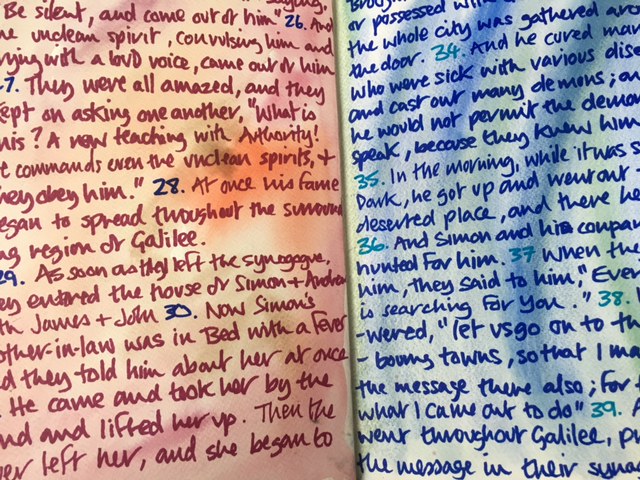 saying,
Be silent, and come out of him" 26. And
he unclean spirit, convulsing him and
rying with a loud voice, came out of him
7. They were all amazed, and they
kept on asking one another, "What is
his? A new teaching with Authority!
e commands even the unclean spirits, +
hey obey him." 28. At once his fame
egan to spread throughout the surroun
ng region of Galilee.
29. As soon as they left the synagogue,
ey entered the house of Simon + Andrew
th James + John 30. Now Simon's
other-in-law was in Bed with a fever
d they told him about her at once
. He came and took her by the
nd and lifted her up. Then the
ver left her, and she began to
brough
or possessed with
the whole city was gathered aro
the door. 34. And he cured man
who were sick with various dise
and cast out many demons; an
he would not permit the demon
speak, because they knew him
35. In the morning, while it was s
Dark, he got up and went out
deserted place, and there he
36. And Simon and his compan
hunted for him. 37 When the
him, they said to him, "Every
is searching for you." 38.
-wered, "let us go on to th
-bouring towns, so that I may
the message there also; for
what I came out to do" 39. A
went throughout Galilee, pr
the message in their synag